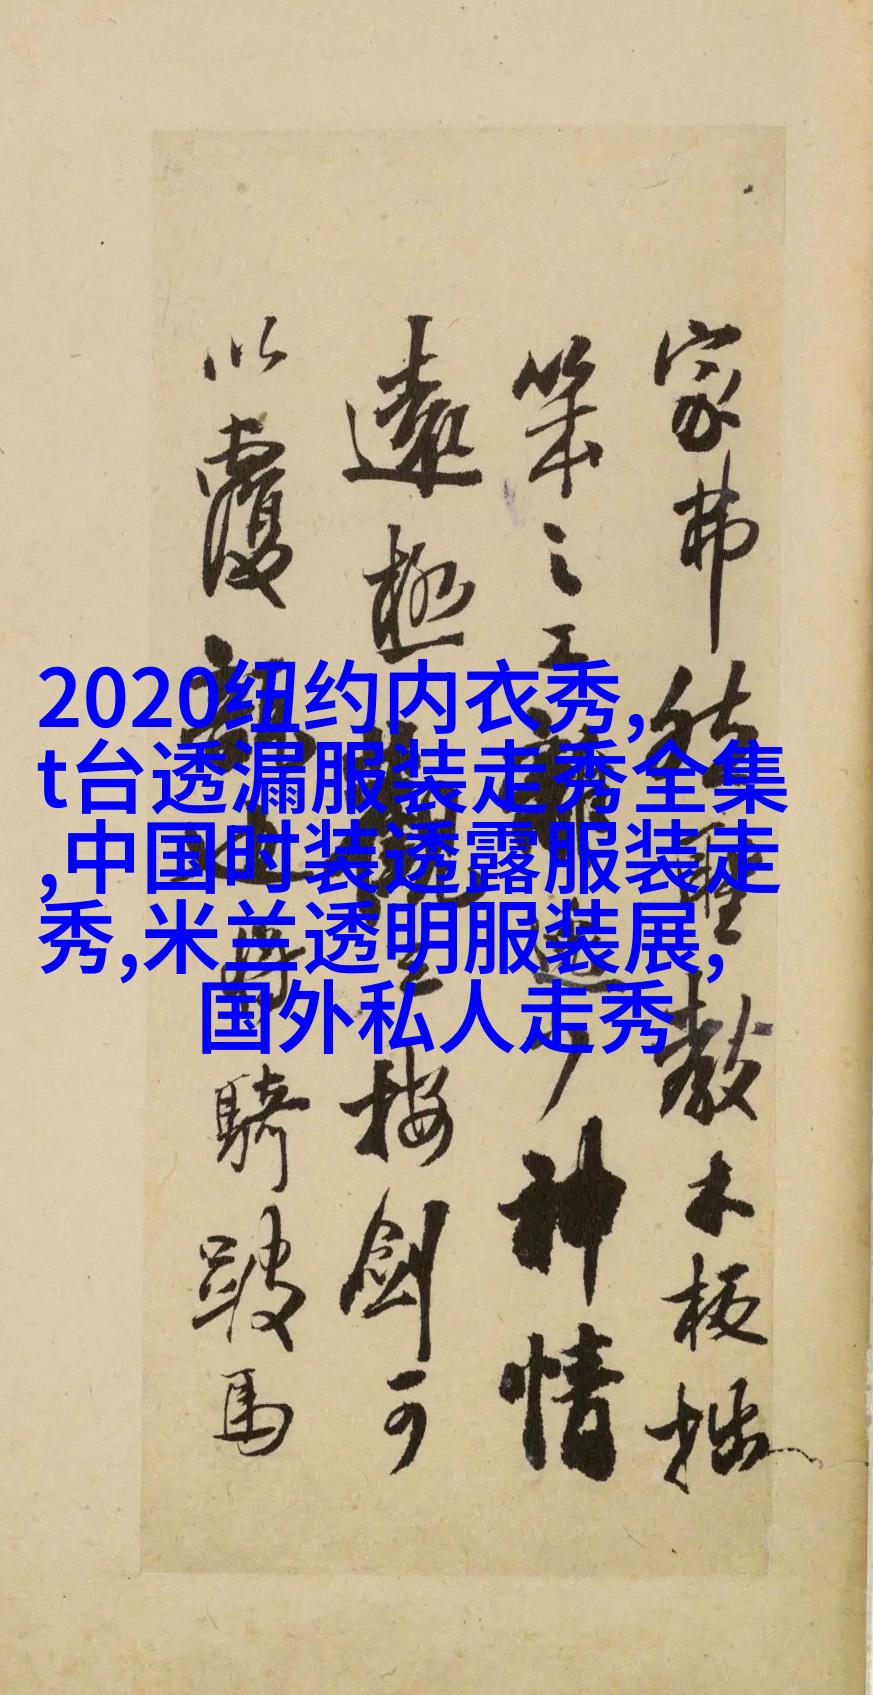 2020纽约内衣秀,
t台透漏服装走秀全集
,中国时装透露服装走
秀,米兰透明服装展,
国外私人走秀
家弗聖教木板拙
筆之工雖神情
遠極按劍可
以覆騎跛馬